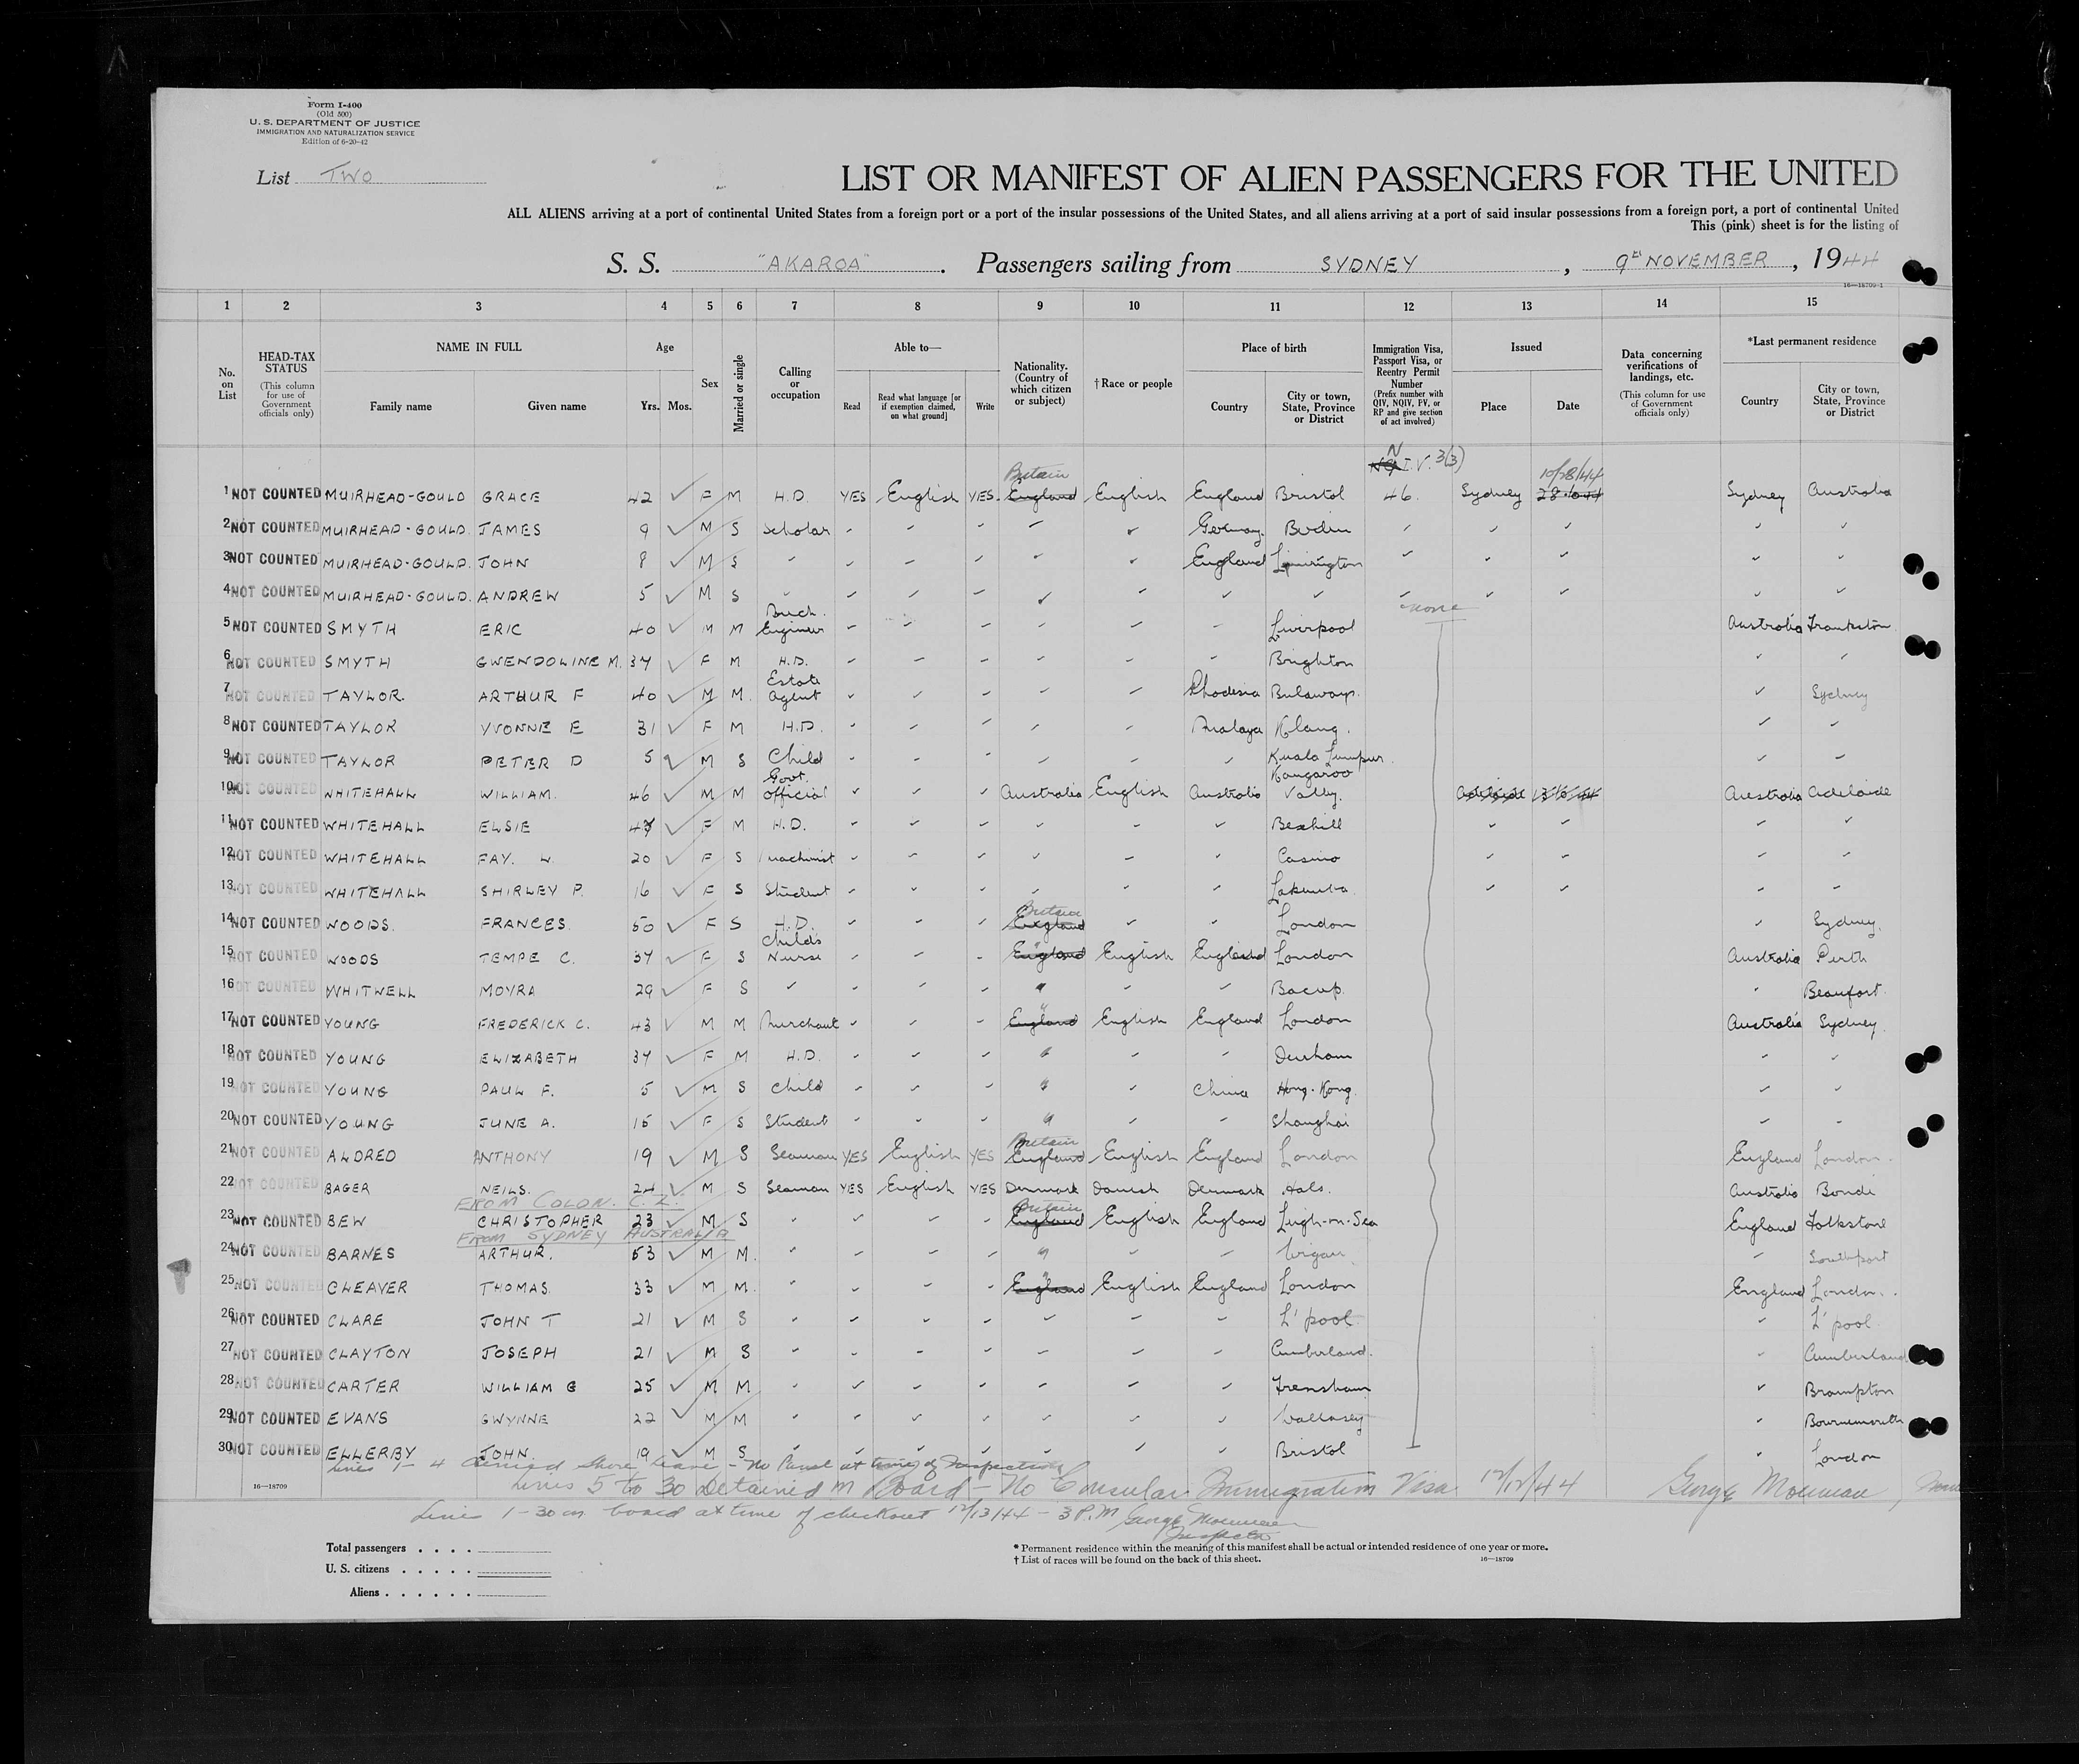 Form I-400
(Old 500)
U. S. DEPARTMENT OF JUSTICE
IMMIGRATION AND NATURALIZATION SERVICE
Edition of 6-20-42
List TWO
LIST OR MANIFEST OF ALIEN PASSENGERS FOR THE UNITED
ALL ALIENS arriving at a port of continental United States from a foreign port or a port of the insular possessions of the United States, and all aliens arriving at a port of said insular possessions from a foreign port, a port of continental United
This (pink) sheet is for the listing of
S. S. "AKAROA". Passengers sailing from SYDNEY, 9th NOVEMBER, 1944
16—18709-1
1 2 3 4 5 6 7 8 9 10 11 12 13 14 15
No. on List
HEAD-TAX STATUS (This column for use of Government officials only)
NAME IN FULL Family name Given name
Age Yrs. Mos.
Sex
Married or single
Calling or occupation
Able to— Read Read what language [or if exemption claimed, on what ground] Write
Nationality. (Country of which citizen or subject)
†Race or people
Place of birth Country City or town, State, Province or District
Immigration Visa, Passport Visa, or Reentry Permit Number (Prefix number with QIV, NQIV, PV, or RP and give section of act involved)
Issued Place Date
Data concerning verifications of landings, etc. (This column for use of Government officials only)
*Last permanent residence Country City or town, State, Province or District
N I.V. 3(3)
Britain 10/28/44
1 NOT COUNTED MUIRHEAD-GOULD GRACE 42 ✓ F M H.D. YES English YES England English England Bristol 46. Sydney 28.10.44 Sydney Australia
2 NOT COUNTED MUIRHEAD-GOULD. JAMES 9 ✓ M S Scholar " " " " " Germany Berlin " " " " "
3 NOT COUNTED MUIRHEAD-GOULD. JOHN 8 ✓ M S " " " " " " England " " " " "
4 NOT COUNTED MUIRHEAD-GOULD. ANDREW 5 ✓ M S " " " " " " " " " " " " "
none
5 NOT COUNTED SMYTH ERIC 40 ✓ M M Engineer " " " " " " Liverpool Australia Frankston
6 NOT COUNTED SMYTH GWENDOLINE M. 34 ✓ F M H.D. " " " " " " Brighton " "
7 NOT COUNTED TAYLOR. ARTHUR F 40 ✓ M M. Estate Agent " " " " " Rhodesia Bulawayo. " Sydney
8 NOT COUNTED TAYLOR YVONNE E 31 ✓ F M H.D. " " " " " Malaya Klang. " "
9 NOT COUNTED TAYLOR PETER D 5 ✓ M S Child " " " " " " Kuala Lumpur. " "
10 NOT COUNTED WHITEHALL WILLIAM. 46 ✓ M M Govt. Official " " " Australia English Australia Kangaroo Valley. Adelaide Australia Adelaide
11 NOT COUNTED WHITEHALL ELSIE F M H.D. " " " " " " Bexhill " " " "
12 NOT COUNTED WHITEHALL FAY. W. 20 ✓ F S Machinist " " " " " " Casino " " " "
13 NOT COUNTED WHITEHALL SHIRLEY P. 16 ✓ F S Student " " " " " " Lakemba. " " " "
Britain
14 NOT COUNTED WOODS. FRANCES. 50 ✓ F S H.D. " " " England " " London " Sydney.
15 NOT COUNTED WOODS TEMPE C. 34 ✓ F S Child's Nurse " " " England English England London Australia Perth
16 NOT COUNTED WHITWELL MOYRA 29 ✓ F S " " " " " " " Bacup. " Beaufort.
17 NOT COUNTED YOUNG FREDERICK C. 43 ✓ M M Merchant " " " England English England London Australia Sydney.
18 NOT COUNTED YOUNG ELIZABETH 34 ✓ F M H.D. " " " " " " Durham " "
19 NOT COUNTED YOUNG PAUL F. 5 ✓ M S Child " " " " " China Hong-Kong. " "
20 NOT COUNTED YOUNG JUNE A. 15 ✓ F S Student " " " " " " Shanghai " "
Britain
21 NOT COUNTED ALDRED ANTHONY 19 ✓ M S Seaman YES English YES England English England London England London.
22 NOT COUNTED BAGER NEILS. 24 ✓ M S Seaman YES English YES Denmark Danish Denmark Hals. Australia Bondi
FROM COLON. C.Z. Britain
23 NOT COUNTED BEW CHRISTOPHER 23 ✓ M S " " " " England English England Leigh-on-Sea England Folkstone
FROM SYDNEY AUSTRALIA
24 NOT COUNTED BARNES ARTHUR. 53 ✓ M M. " " " " " " " Wigan " Southport
25 NOT COUNTED CLEAVER THOMAS. 33 ✓ M M. " " " " England English England London England London.
26 NOT COUNTED CLARE JOHN T 21 ✓ M S " " " " " " " L'pool. " L'pool
27 NOT COUNTED CLAYTON JOSEPH 21 ✓ M S " " " " " " " Cumberland. " Cumberland
28 NOT COUNTED CARTER WILLIAM G 25 ✓ M M " " " " " " " Frensham " Brampton
29 NOT COUNTED EVANS GWYNNE 22 ✓ M M " " " " " " " Wallasey " Bournemouth
30 NOT COUNTED ELLERBY JOHN. 19 ✓ M S " " " " " " " Bristol " London
Lines 1 - 4 denied shore leave - No Panel at time of Inspection
16—18709 Lines 5 to 30 Detained on Board - No Consular Immigration Visa 12/12/44 George
Lines 1-30 on board at time of checkout 12/13/44 - 3 P.M George
Inspector
Total passengers . . . .
U. S. citizens . . . . .
Aliens . . . . . .
* Permanent residence within the meaning of this manifest shall be actual or intended residence of one year or more.
† List of races will be found on the back of this sheet. 16—18709